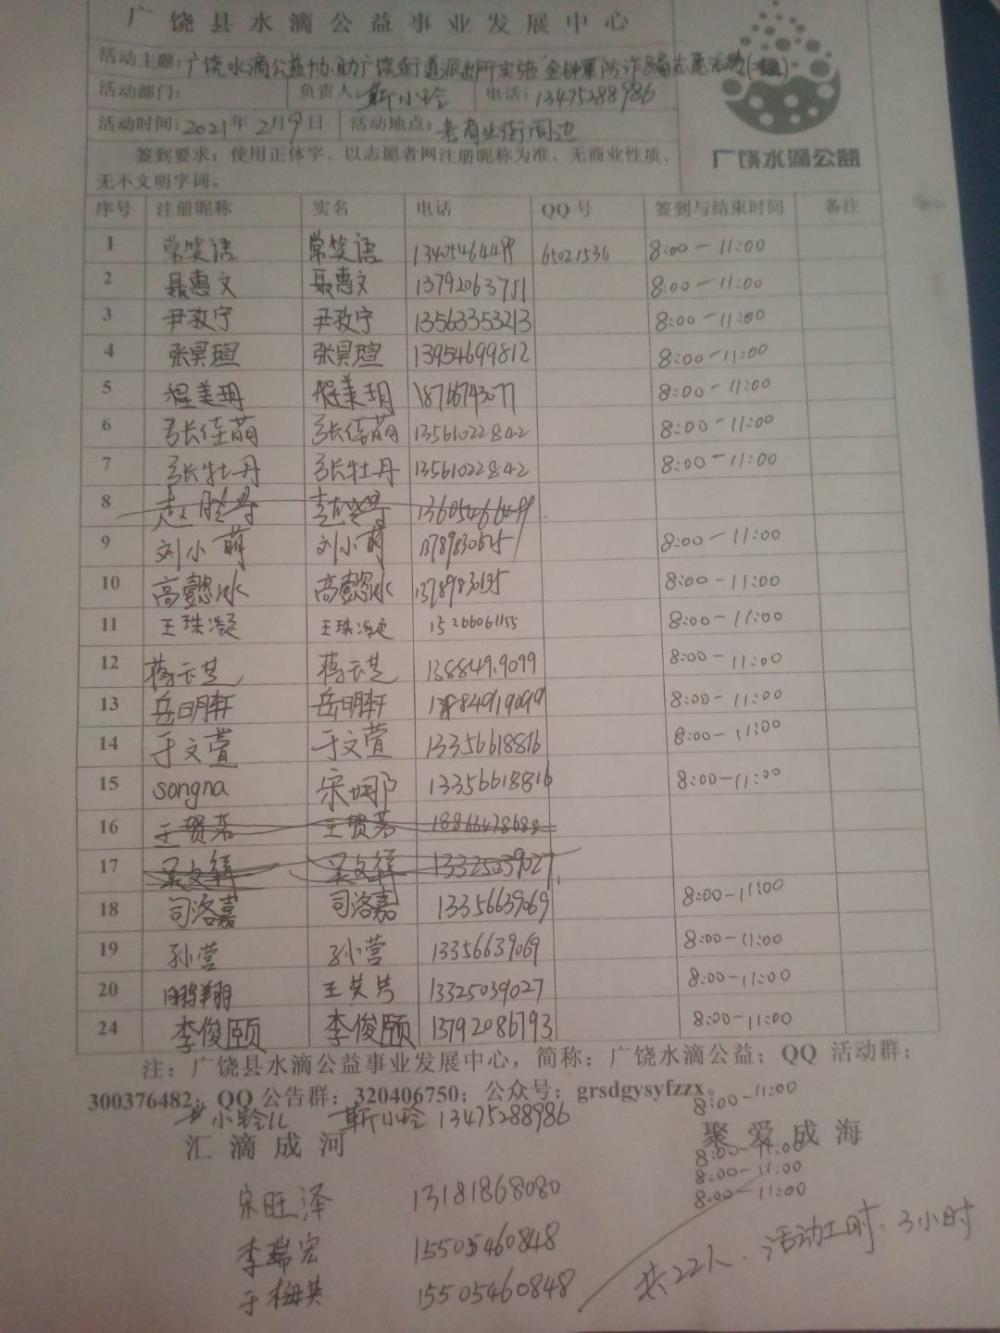 广饶县水滴公益事业发展中心
活动主题:广饶水滴公益协助广饶街道派出所实施"金钟罩防诈
活动部门: 负责人:靳小玲 电话:13475288986
活动时间:2021年2月9日 活动地点:老商业街周边
签到要求:使用正体字、以志愿者网注册昵称为准、无商业性质、
无不文明字词。
广饶水滴公益
序号 注册昵称 实名 电话 QQ号 签到与结束时间 备注
1 常笑语 常笑语 13405464499 65021536 8:00-11:00
2 聂惠文 聂惠文 13792063751 8:00-11:00
3 尹孜宁 尹孜宁 13563353213 8:00-11:00
4 张昊瑄 张昊瑄 13954699812 8:00-11:00
5 程美玥 程美玥 18766743077 8:00-11:00
6 张佳萌 张佳萌 13561022842 8:00-11:00
7 张牡丹 张牡丹 13561022842 8:00-11:00
8
9 刘小萌 刘小萌 8:00-11:00
10 高懿冰 高懿冰 8:00-11:00
11 王珠凝 王珠凝 15266061155 8:00-11:00
12 8:00-11:00
13 岳明轩 岳明轩 8:00-11:00
14 于文萱 于文萱 13356618816 8:00-11:00
15 songna 宋娜 13356618816 8:00-11:00
16 王贤若 王贤若
17 13325039027
18 司洛嘉 司洛嘉 13356639069 8:00-11:00
19 孙营 孙营 13356639069 8:00-11:00
20 鹏翔 王英芳 13325039027 8:00-11:00
24 李俊颐 李俊颐 13792086793 8:00-11:00
注:广饶县水滴公益事业发展中心,简称:广饶水滴公益;QQ活动群:
300376482;QQ公告群:320406750;公众号:grsdgysyfzzx。
8:00-11:00
小玲儿 靳小玲 13475288986
汇滴成河 聚爱成海
8:00-11:00
8:00-11:00
8:00-11:00
宋旺泽 13181868080
李瑞宏 15505460848
于梅英 15505460848
共22人、活动工时:3小时